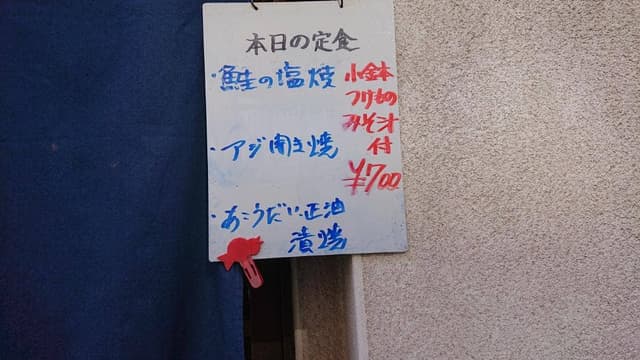 本日の定食
・鮭の塩焼
・アジ開き焼
・あこうだい正油
漬焼
小鉢
つけもの
みそ汁
付
¥700